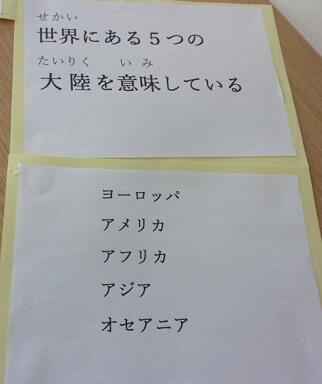 せかい
世界にある５つの
たいりく　いみ
大陸を意味している
ヨーロッパ
アメリカ
アフリカ
アジア
オセアニア